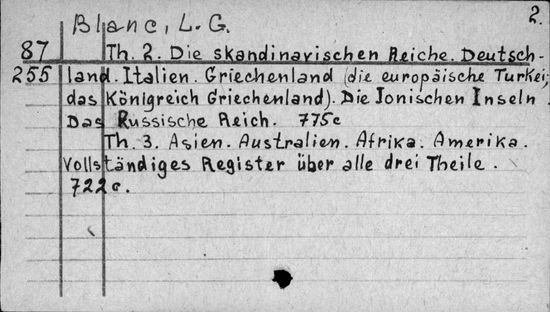 2.
Blanc, L. G.
87 Th. 2. Die skandinavischen Reiche. Deutsch-
255 land. Italien. Griechenland (die europäische Turkei,
das Königreich Griechenland). Die Jonischen Inseln.
Das Russische Reich. 775c
Th. 3. Asien. Australien. Afrika. Amerika.
Vollständiges Register über alle drei Theile.
722c.